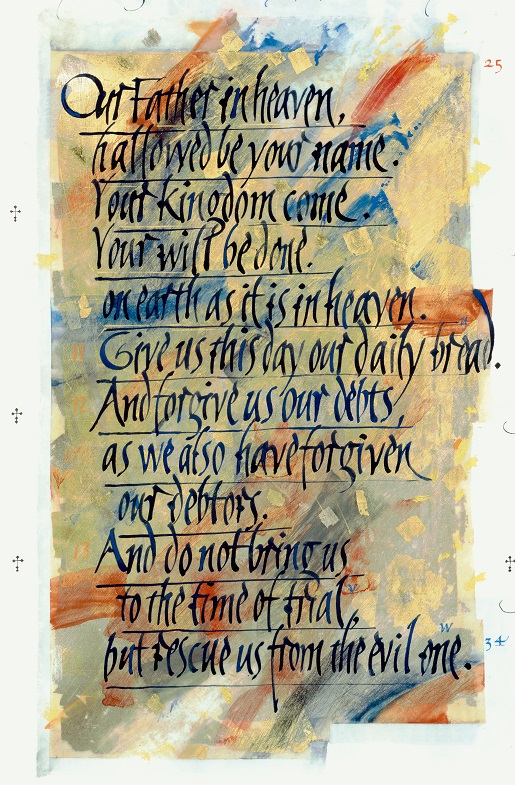 25
Our Father in heaven,
hallowed be your name.
Your kingdom come.
Your will be done.
on earth as it is in heaven.
11 Give us this day our daily bread.
12 And forgive us our debts,
as we also have forgiven
our debtors.
13 And do not bring us
to the time of trial, v
but rescue us from the evil one. w
34